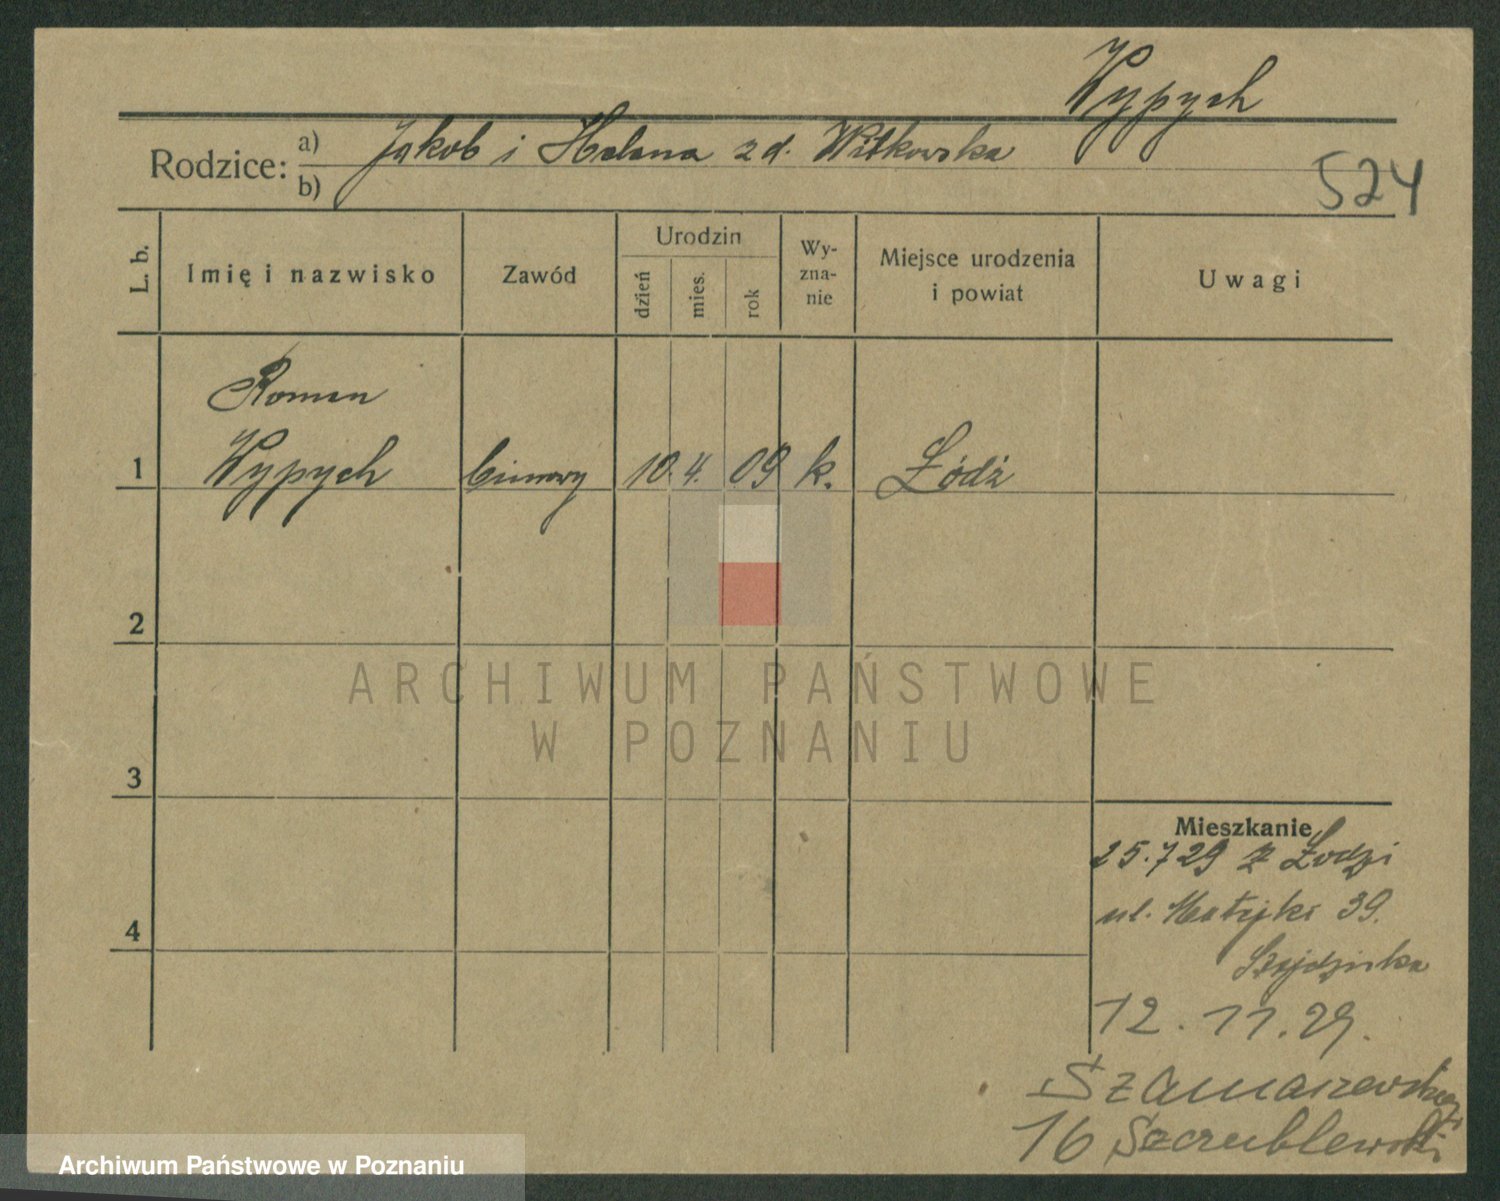 Wypych
Rodzice: a) Jakob i Helena z d. Witkowska
b)
524
L. b.
Imię i nazwisko
Zawód
Urodzin
dzień
mies.
rok
Wy-
zna-
nie
Miejsce urodzenia
i powiat
Uwagi
Roman
1 Wypych 10. 4. 09 k. Łódź
2
3
4
Mieszkanie
25.7 29 z Łodzi
ul. Matejki 39.
12. 11. 29.
16
ARCHIWUM PAŃSTWOWE
W POZNANIU
Archiwum Państwowe w Poznaniu